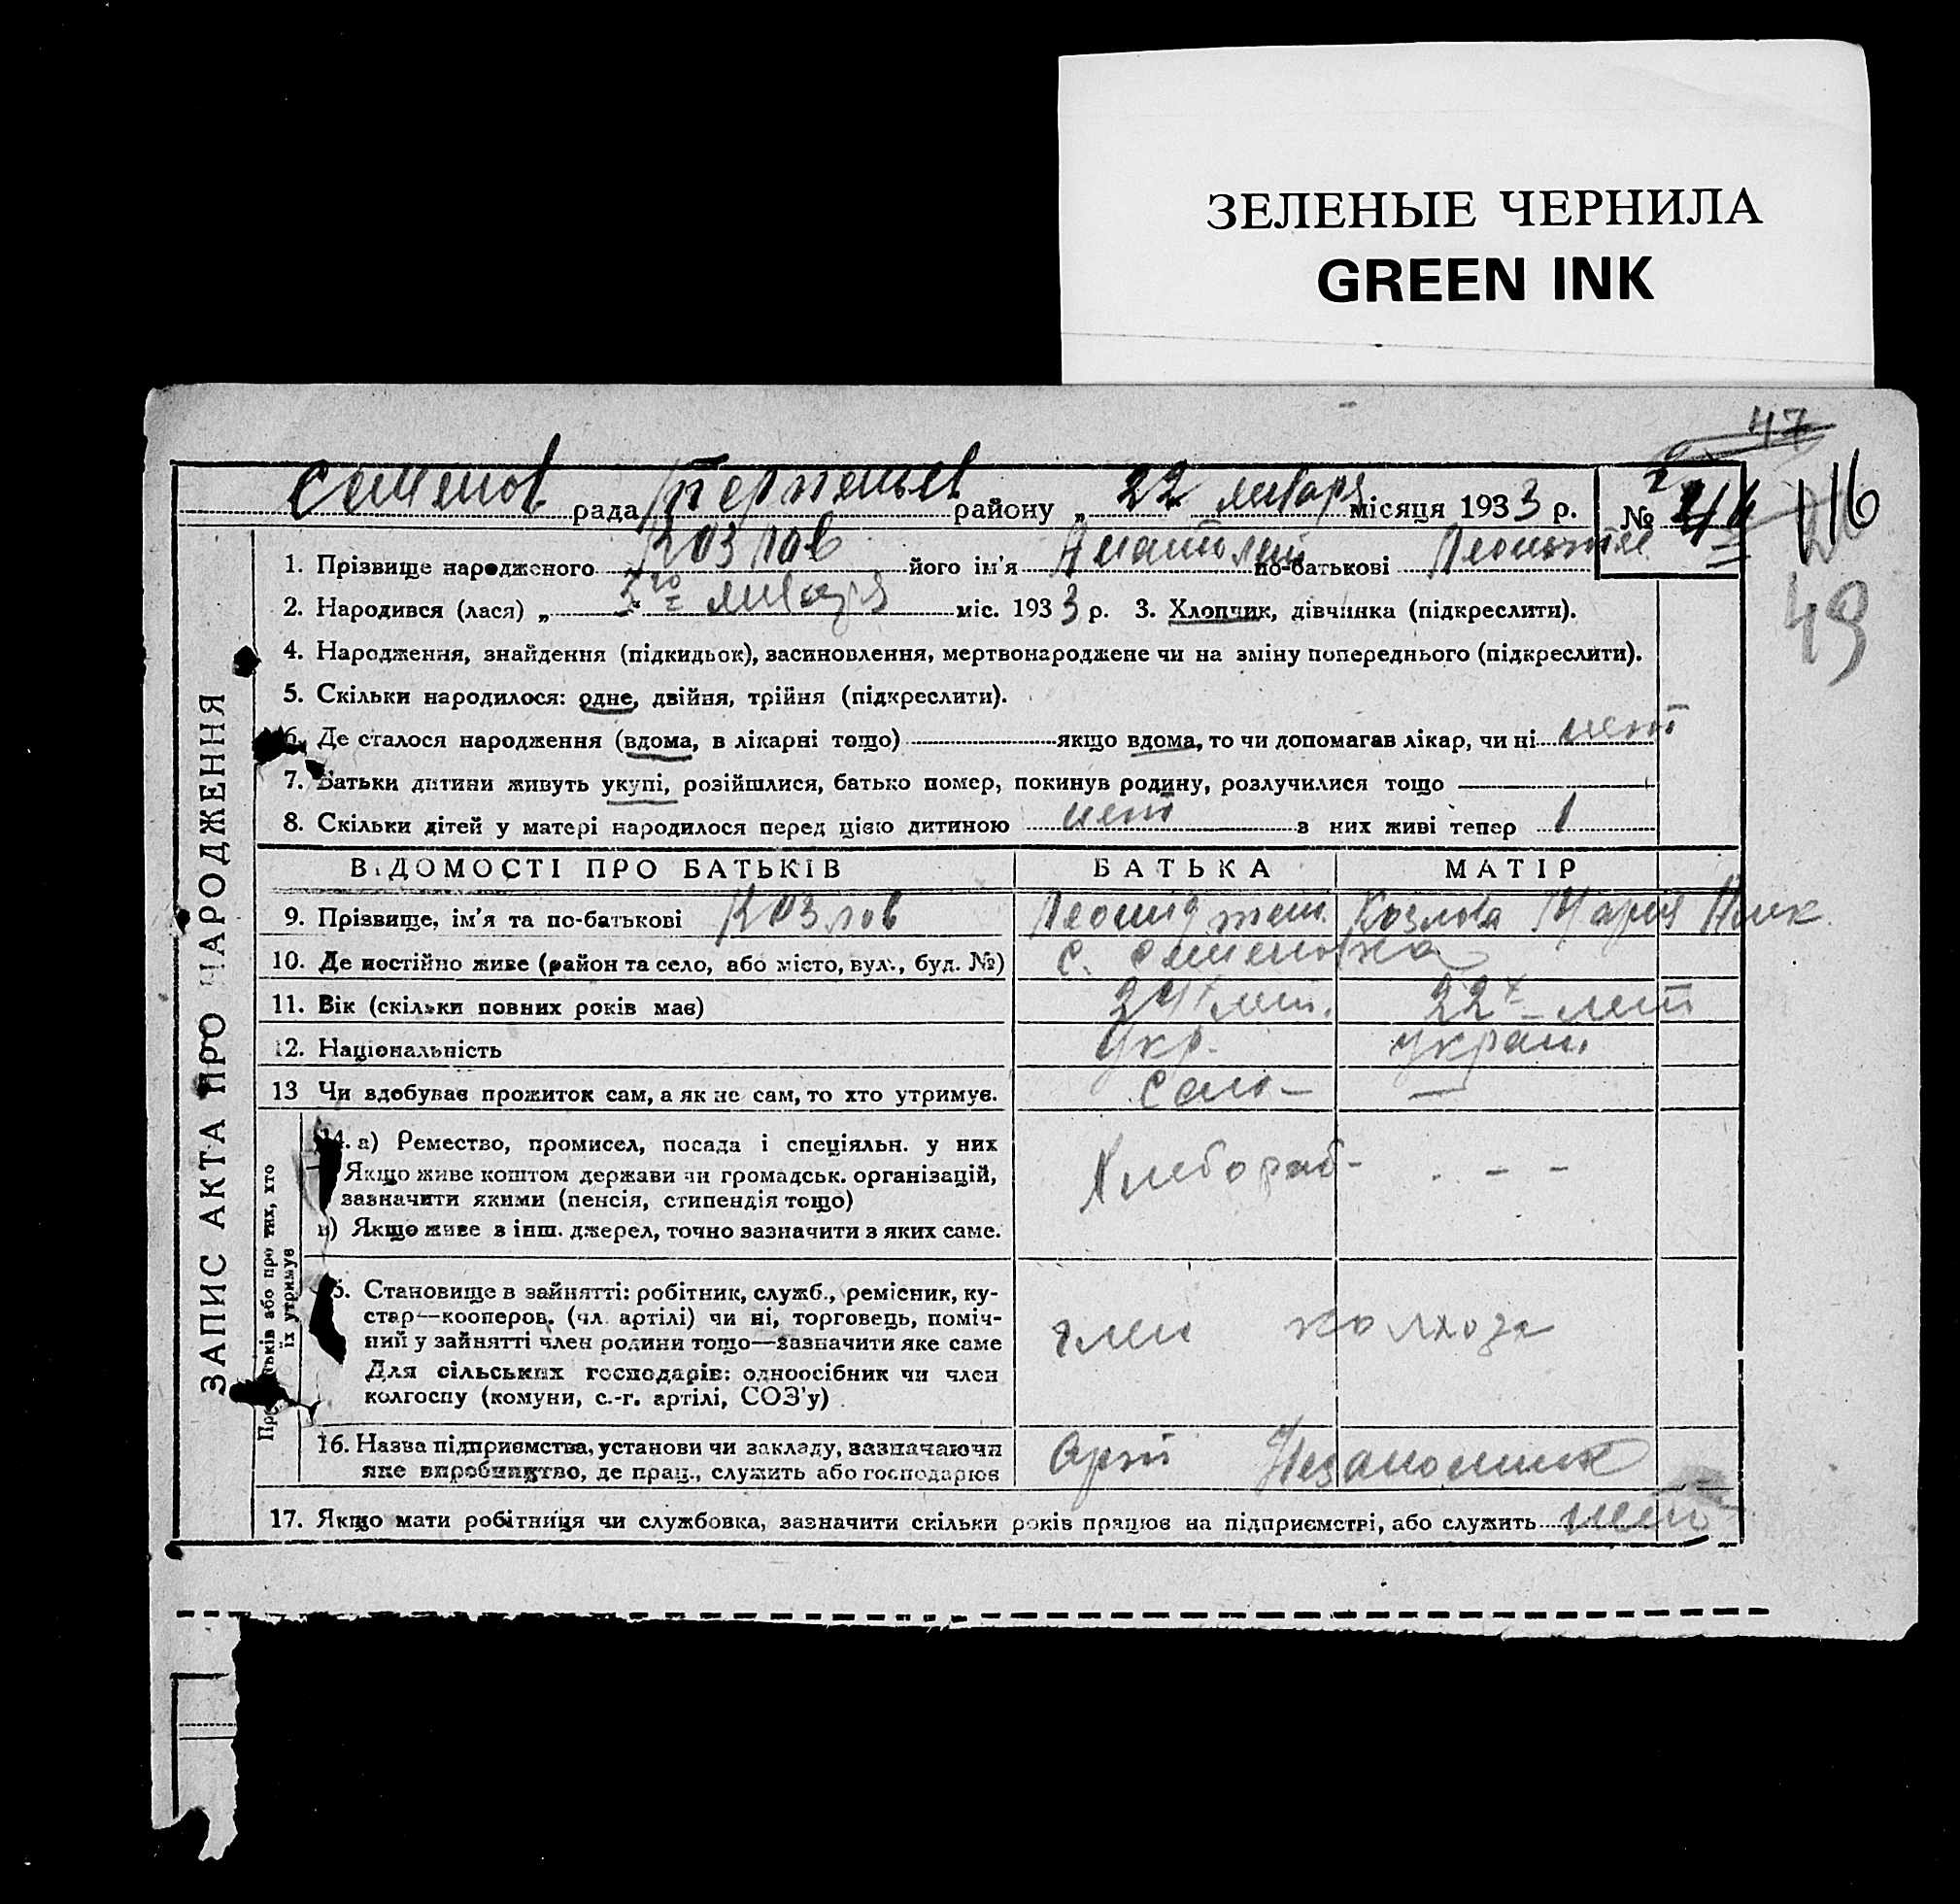 ЗЕЛЕНЫЕ ЧЕРНИЛА
GREEN INK
47
Семенов рада Терпеньев району „ 22 января місяця 1933 р. №
116
49
ЗАПИС АКТА ПРО НАРОДЖЕННЯ
1. Прізвище народженого Козлов його ім'я Анатолий по-батькові
2. Народився (лася) „ 5го января міс. 1933 р. 3. Хлопчик, дівчинка (підкреслити).
4. Народження, знайдення (підкидьок), засиновлення, мертвонароджене чи на зміну попереднього (підкреслити).
5. Скільки народилося: одне, двійня, трійня (підкреслити).
6. Де сталося народження (вдома, в лікарні тощо) якщо вдома, то чи допомагав лікар, чи ні нет
7. Батьки дитини живуть укупі, розійшлися, батько помер, покинув родину, розлучилися тощо
8. Скільки дітей у матері народилося перед цією дитиною нет з них живі тепер 1
ВІДОМОСТІ ПРО БАТЬКІВ БАТЬКА МАТІР
9. Прізвище, ім'я та по-батькові Козлов Леонид Козлова Мария Ник.
10. Де постійно живе (район та село, або місто, вул., буд. №) с. Семеновка
11. Вік (скільки повних років має) 24 лет. 22х лет
12. Національність Укр. украин.
13 Чи здобуває прожиток сам, а як не сам, то хто утримує. Сам — —
Про батьків або про тих, хто їх утримує
14. а) Ремество, промисел, посада і спеціяльн. у них Хлебороб - . - -
Якщо живе коштом держави чи громадськ. організацій,
зазначити якими (пенсія, стипендія тощо)
в) Якщо живе з інш. джерел, точно зазначити з яких саме.
15. Становище в зайнятті: робітник, служб., ремісник, ку-
стар—кооперов. (чл. артілі) чи ні, торговець, поміч-
ний у зайнятті член родини тощо—зазначити яке саме член колхоза
Для сільських господарів: одноосібник чи член
колгоспу (комуни, с.-г. артілі, СОЗ'у)
16. Назва підприємства, установи чи закладу, зазначаючи Арт Незаможник
яке виробництво, де прац., служить або господарює
17. Якщо мати робітниця чи службовка, зазначити скільки років працює на підприємстрі, або служить нет